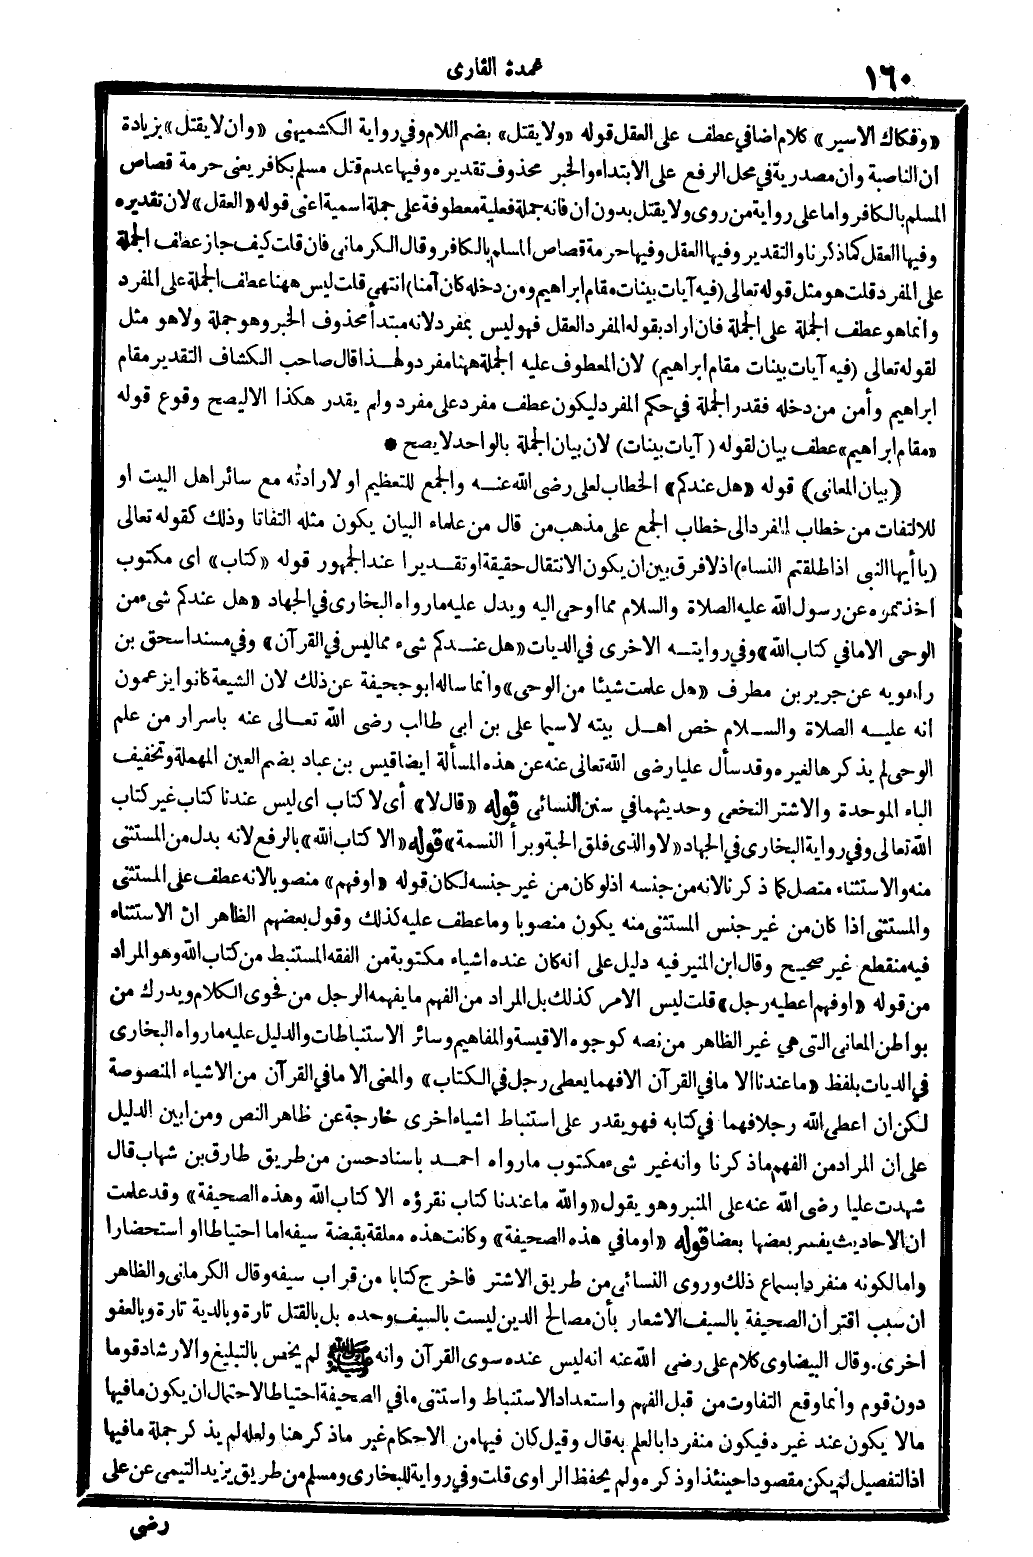 ١٦٠
عمدة القارى
«وفكاك الاسير» كلام اضافي عطف على العقل قوله «ولا يقتل» بضم اللام وفي رواية الكشميهنى «وان لا يقتل» بزيادة
ان الناصبة وان مصدرية في محل الرفع على الابتداء والخبر محذوف تقديره وفيها عدم قتل مسلم بكافر يعنى حرمة قصاص
المسلم بالكافر واما على رواية من روى ولا يقتل بدون ان فانه جملة فعلية معطوفة على جملة اسمية اعنى قوله «العقل» لان تقديره
وفيها العقل كما ذكرنا والتقدير وفيها العقل وفيها حرمة قصاص المسلم بالكافر وقال الكرمانى فان قلت كيف جاز عطف الجملة
على المفرد قلت هو مثل قوله تعالى (فيه آيات بينات مقام ابراهيم ومن دخله كان آمنا) انتهى قلت ليس ههنا عطف الجملة على المفرد
وانما هو عطف الجملة على الجملة فان اراد بقوله المفرد العقل فهو ليس بمفرد لانه مبتدأ محذوف الخبر وهو جملة ولا هو مثل
لقوله تعالى (فيه آيات بينات مقام ابراهيم) لان المعطوف عليه الجملة ههنا مفرد ولهذا قال صاحب الكشاف التقدير مقام
ابراهيم وأمن من دخله فقدر الجملة في حكم المفرد ليكون عطف مفرد على مفرد ولم يقدر هكذا الا ليصح وقوع قوله
«مقام ابراهيم» عطف بيان لقوله (آيات بينات) لان بيان الجملة بالواحد لا يصح ●
(بيان المعانى) قوله «هل عندكم» الخطاب لعلى رضى الله عنه والجمع للتعظيم او لارادته مع سائر اهل البيت او
للالتفات من خطاب المفرد الى خطاب الجمع على مذهب من قال من علماء البيان يكون مثله التفاتا وذلك كقوله تعالى
(يا أيها النبى اذا طلقتم النساء) اذ لا فرق بين ان يكون الانتقال حقيقة او تقديرا عند الجمهور قوله «كتاب» اى مكتوب
اخذتموه عن رسول الله عليه الصلاة والسلام مما اوحى اليه ويدل عليه ما رواه البخارى في الجهاد «هل عندكم شىء من
الوحى الا ما في كتاب الله» وفي روايته الاخرى في الديات «هل عندكم شىء مما ليس في القرآن» وفي مسند اسحق بن
راهويه عن جرير بن مطرف «هل علمت شيئا من الوحى» وانما ساله ابو جحيفة عن ذلك لان الشيعة كانوا يزعمون
انه عليه الصلاة والسلام خص اهل بيته لا سيما على بن ابى طالب رضى الله تعالى عنه باسرار من علم
الوحى لم يذكرها لغيره وقد سأل عليا رضى الله تعالى عنه عن هذه المسألة ايضا قيس بن عباد بضم العين المهملة وتخفيف
الباء الموحدة والاشتر النخعى وحديثهما في سنن النسائى قوله «قال لا» أى لا كتاب اى ليس عندنا كتاب غير كتاب
الله تعالى وفي رواية البخارى في الجهاد «لا والذى فلق الحبة وبرأ النسمة» قوله «الا كتاب الله» بالرفع لانه بدل من المستثنى
منه والاستثناء متصل كما ذكرنا لانه من جنسه اذ لو كان من غير جنسه لكان قوله «او فهم» منصوبا لانه عطف على المستثنى
والمستثنى اذا كان من غير جنس المستثنى منه يكون منصوبا وما عطف عليه كذلك وقول بعضهم الظاهر ان الاستثناء
فيه منقطع غير صحيح وقال ابن المنير فيه دليل على انه كان عنده اشياء مكتوبة من الفقه المستنبط من كتاب الله وهو المراد
من قوله «او فهم اعطيه رجل» قلت ليس الامر كذلك بل المراد من الفهم ما يفهمه الرجل من فحوى الكلام ويدرك من
بواطن المعانى التى هي غير الظاهر من نصه كوجوه الاقيسة والمفاهيم وسائر الاستنباطات والدليل عليه ما رواه البخارى
في الديات بلفظ «ما عندنا الا ما في القرآن الا فهما يعطى رجل في الكتاب» والمعنى الا ما في القرآن من الاشياء المنصوصة
لكن ان اعطى الله رجلا فهما في كتابه فهو يقدر على استنباط اشياء اخرى خارجة عن ظاهر النص ومن ابين الدليل
على ان المراد من الفهم ما ذكرنا وانه غير شىء مكتوب ما رواه احمد باسناد حسن من طريق طارق بن شهاب قال
شهدت عليا رضى الله عنه على المنبر وهو يقول «والله ما عندنا كتاب نقرؤه الا كتاب الله وهذه الصحيفة» وقد علمت
ان الاحاديث يفسر بعضها بعضا قوله «او ما في هذه الصحيفة» وكانت هذه معلقة بقبضة سيفه اما احتياطا او استحضارا
واما لكونه منفردا بسماع ذلك وروى النسائى من طريق الاشتر فاخرج كتابا من قراب سيفه وقال الكرمانى والظاهر
ان سبب اقتران الصحيفة بالسيف الاشعار بأن مصالح الدين ليست بالسيف وحده بل بالقتل تارة وبالدية تارة وبالعفو
اخرى. وقال البيضاوى كلام على رضى الله عنه انه ليس عنده سوى القرآن وانه ﷺ لم يخص بالتبليغ والارشاد قوما
دون قوم وانما وقع التفاوت من قبل الفهم واستعداد الاستنباط واستثنى ما في الصحيفة احتياطا لاحتمال ان يكون ما فيها
مالا يكون عند غيره فيكون منفردا بالعلم به قال وقيل كان فيها من الاحكام غير ما ذكر هنا ولعله لم يذكر جملة ما فيها
اذ التفصيل لم يكن مقصودا حينئذ او ذكره ولم يحفظ الراوى قلت وفي رواية للبخارى ومسلم من طريق يزيد التيمى عن على
رضى